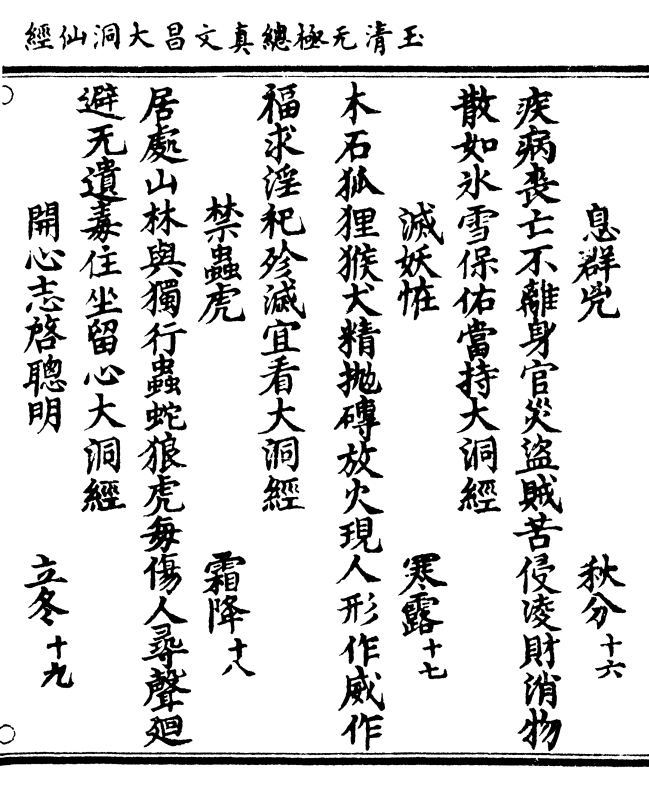 玉清无極總真文昌大洞仙經
息群兇 秋分十六
疾病喪亡不離身官災盜賊苦侵凌財消物
散如氷雪保佑當持大洞經
滅妖恠 寒露十七
木石狐狸猴犬精拋磚放火現人形作威作
福求淫祀殄滅宜看大洞經
禁蟲虎 霜降十八
居處山林與獨行蟲蛇狼虎每傷人尋聲廻
避无遺毒住坐留心大洞經
開心志啓聰明 立冬十九